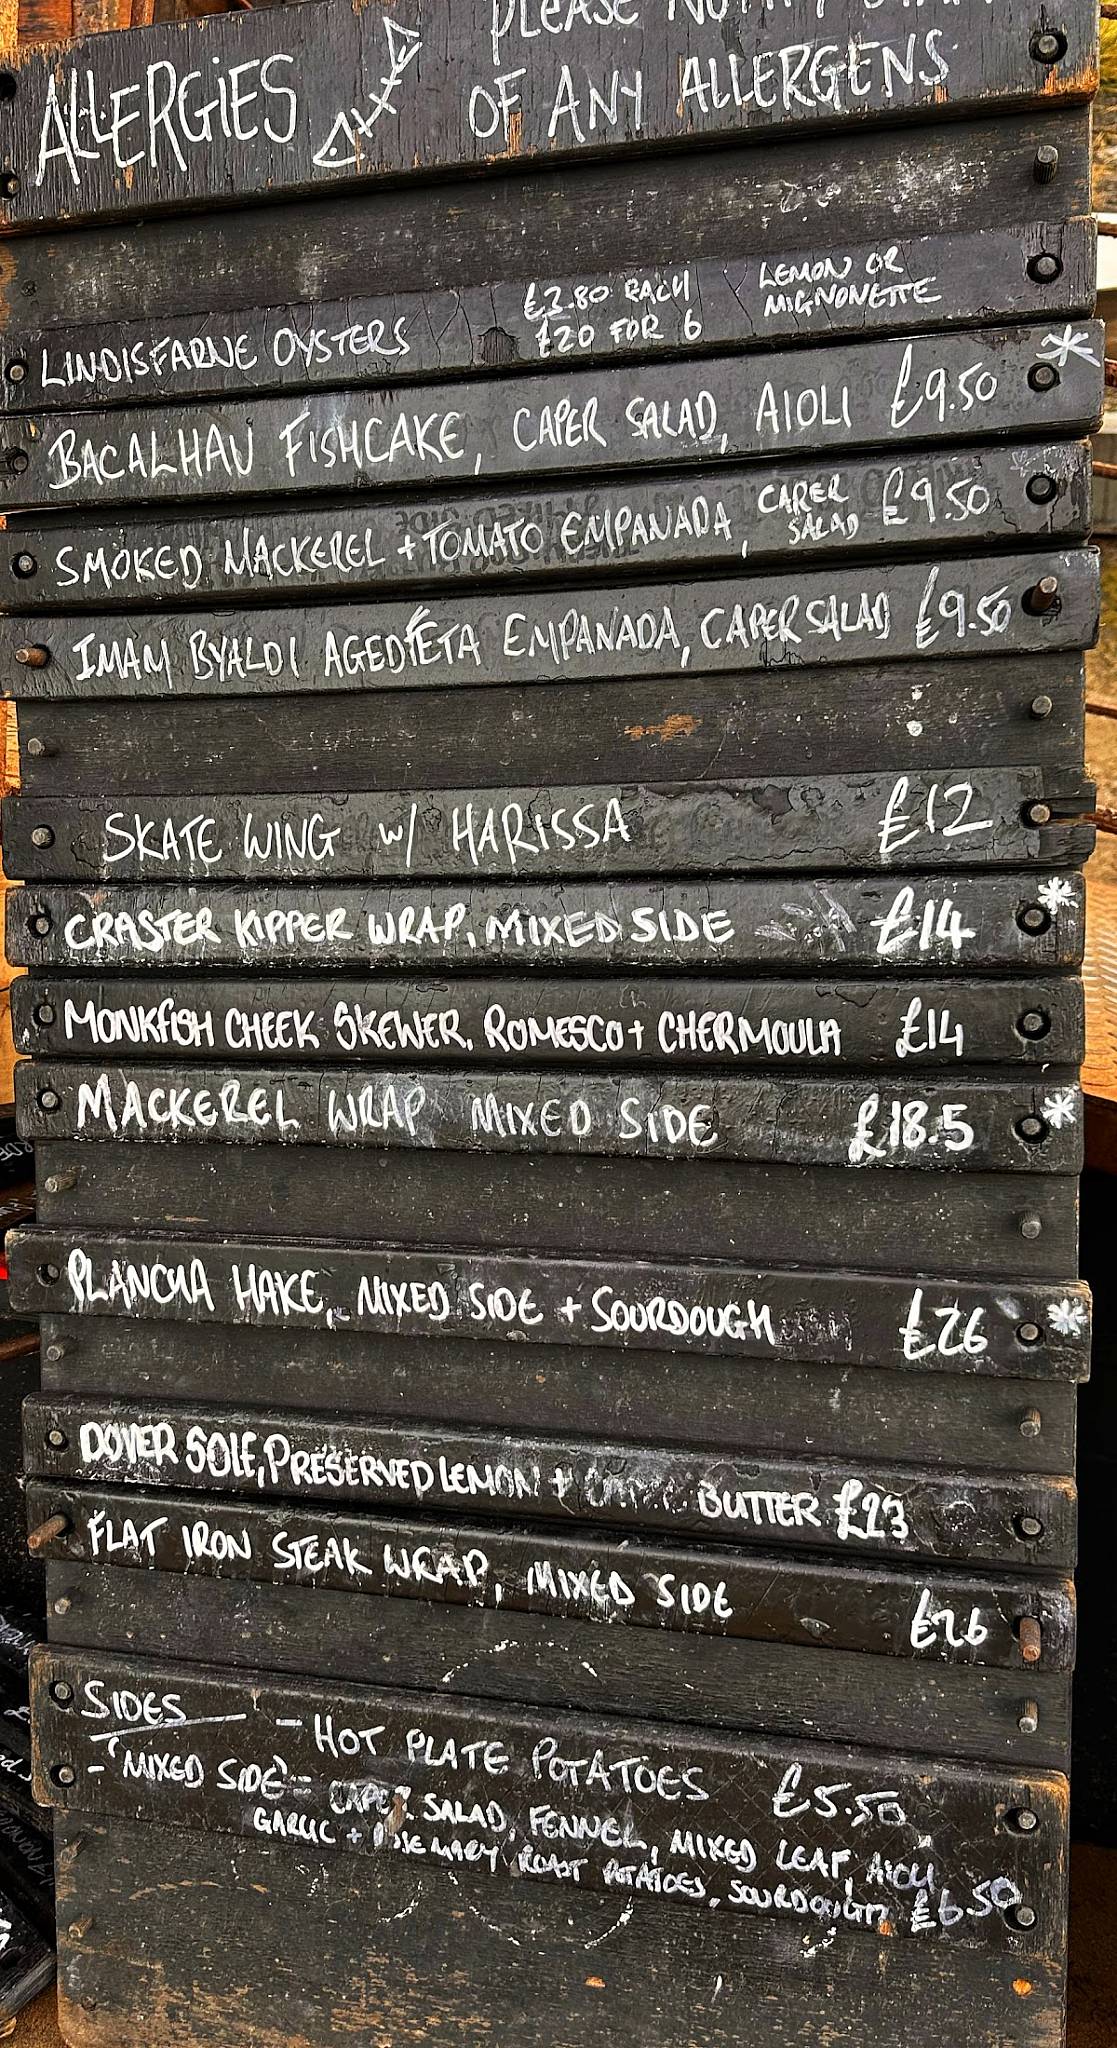 ALLERGIES
PLEASE NOTIFY STAFF
OF ANY ALLERGENS
LINDISFARNE OYSTERS £3.80 EACH
£20 FOR 6
LEMON OR
MIGNONETTE
BACALHAU FISHCAKE, CAPER SALAD, AIOLI £9.50 *
SMOKED MACKEREL + TOMATO EMPANADA, CAPER SALAD £9.50
IMAM BYALDI AGED FETA EMPANADA, CAPER SALAD £9.50
SKATE WING W/ HARISSA £12
CRASTER KIPPER WRAP, MIXED SIDE £14 *
MONKFISH CHEEK SKEWER, ROMESCO + CHERMOULA £14
MACKEREL WRAP MIXED SIDE £18.5 *
PLANCHA HAKE, MIXED SIDE + SOURDOUGH £26 *
DOVER SOLE, PRESERVED LEMON + BUTTER £23
FLAT IRON STEAK WRAP, MIXED SIDE £26
SIDES - HOT PLATE POTATOES £5.50
- 'MIXED SIDE' = CAPER SALAD, FENNEL, MIXED LEAF, AIOLI
GARLIC + ROSEMARY ROAST POTATOES, SOURDOUGH £6.50